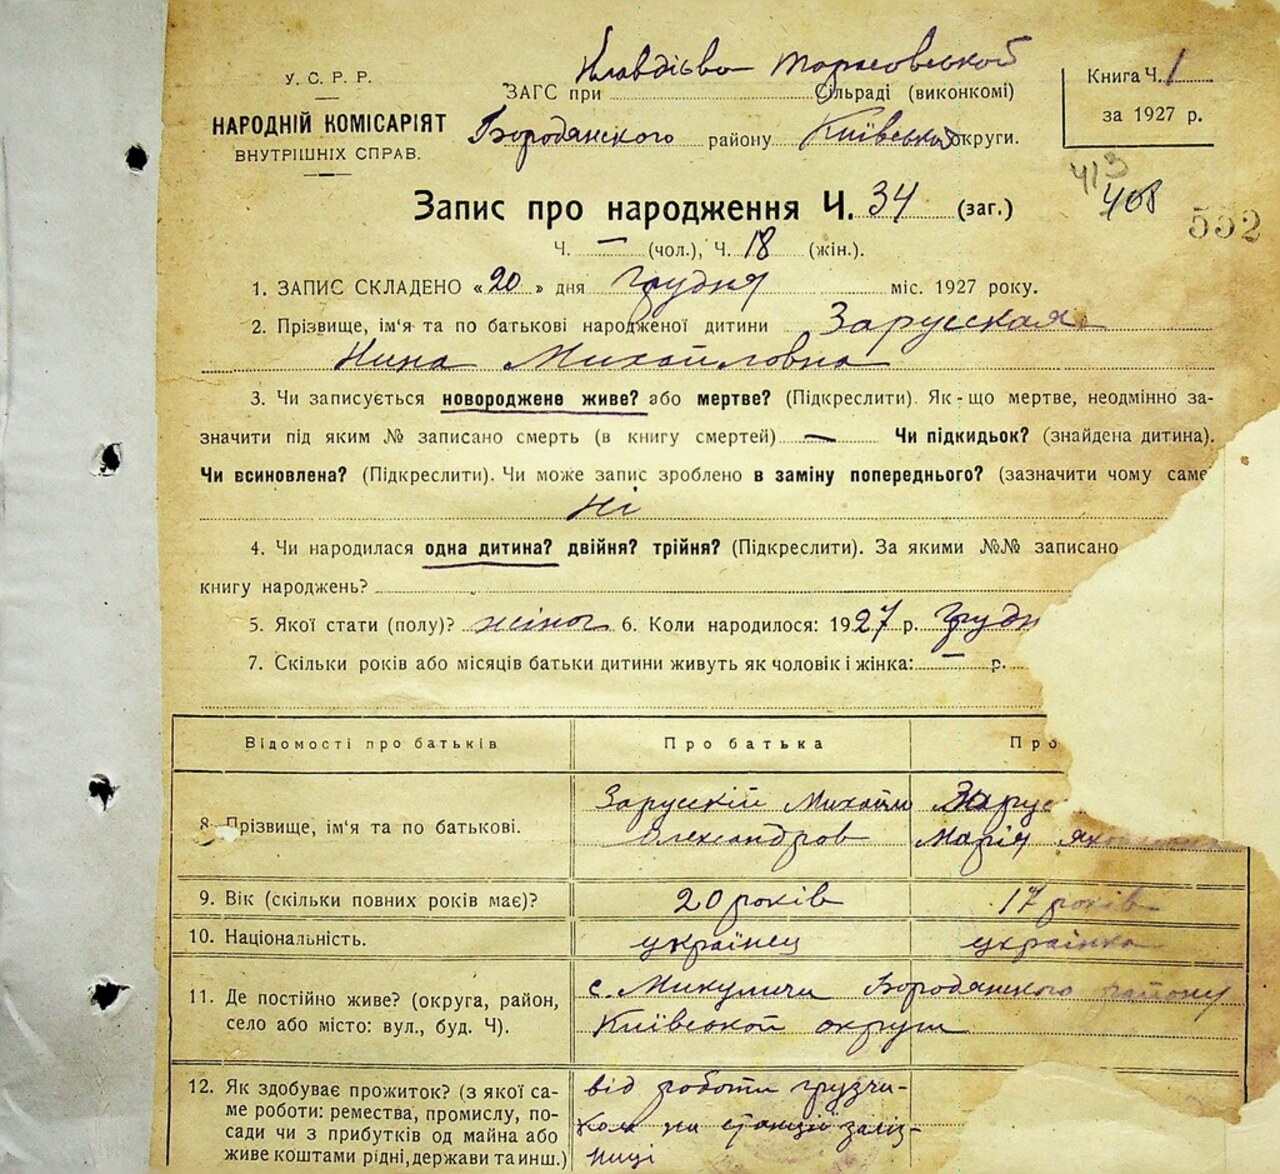 Клавдієво Тарасовській
У. С. Р. Р.
ЗАГС при Сільраді (виконкомі)
Книга Ч. 1
НАРОДНІЙ КОМІСАРІЯТ
Бородянского району Київської округи.
за 1927 р.
ВНУТРІШНІХ СПРАВ.
413
408
552
Запис про народження Ч. 34 (заг.)
Ч. — (чол.), Ч. 18 (жін.).
1. ЗАПИС СКЛАДЕНО «20» дня грудня міс. 1927 року.
2. Прізвище, ім'я та по батькові народженої дитини Зарусская
Нина Михайловна
3. Чи записується новороджене живе? або мертве? (Підкреслити). Як-що мертве, неодмінно за-
значити під яким № записано смерть (в книгу смертей) — Чи підкидьок? (знайдена дитина).
Чи всиновлена? (Підкреслити). Чи може запис зроблено в заміну попереднього? (зазначити чому саме
Ні
4. Чи народилася одна дитина? двійня? трійня? (Підкреслити). За якими №№ записано
книгу народжень?
5. Якої стати (полу)? жіноч 6. Коли народилося: 1927 р. грудн
7. Скільки років або місяців батьки дитини живуть як чоловік і жінка: — р.
Відомості про батьків Про батька Про
8. Прізвище, ім'я та по батькові. Зарусскій Михайло Зарус
Олександров Марія
9. Вік (скільки повних років має)? 20 років 17 років
10. Національність. українец українка
11. Де постійно живе? (округа, район, с. Микуличи Бородянського району
село або місто: вул., буд. Ч). Київськой округи
12. Як здобуває прожиток? (з якої са- від роботи грузчи-
ме роботи: ремества, промислу, по- ком на станції заліз-
сади чи з прибутків од майна або
живе коштами рідні, держави та инш.) ниці